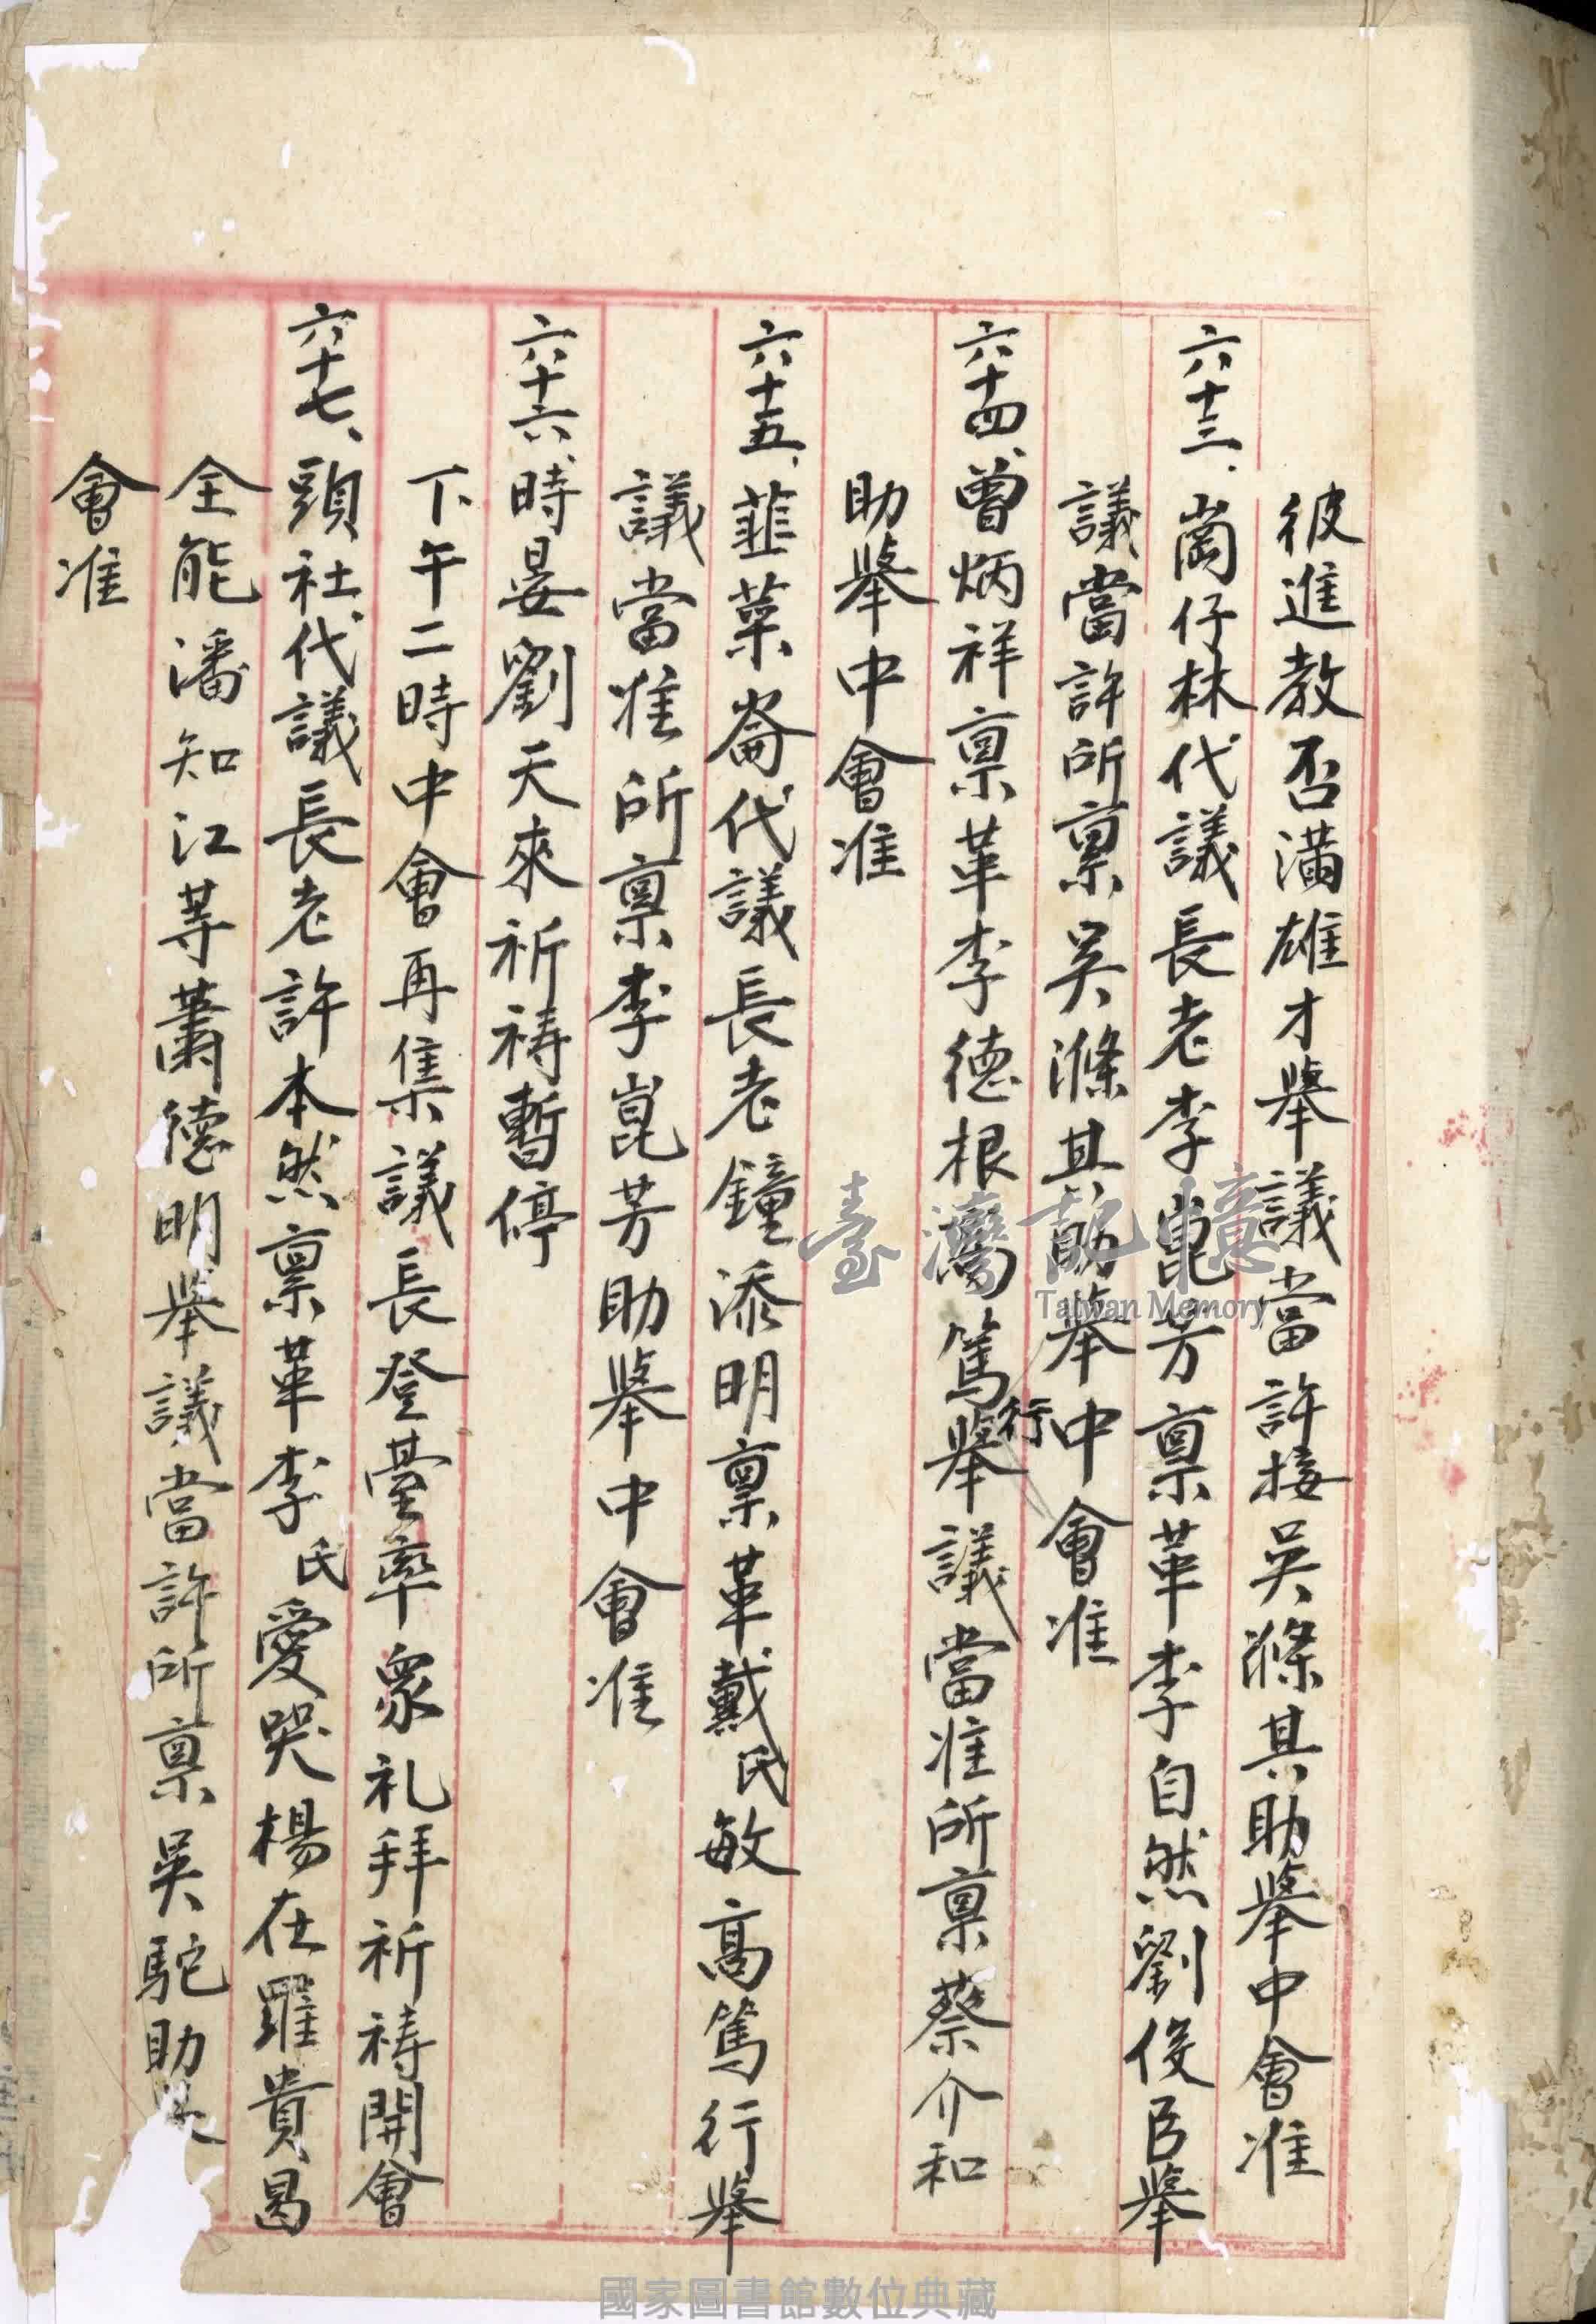 彼進教否滿雄才舉議當許接吳滌其助舉中會准
六十三、崗仔林代議長老李崑芳禀革李自然劉俊臣舉
議當許所禀吳滌其助舉中會准
六十四、曾炳祥禀革李德根 篤行舉議當准所禀蔡介和
助舉中會准
六十五、韮菜崙代議長老鐘添明禀革戴氏敏高篤行舉
議當准所禀李崑芳助舉中會准
六十六、時晏劉天來祈禱暫停
下午二時中會再集議長登臺率眾礼拜祈禱開會
六十七、頭社代議長老許本然禀革李氏愛哭楊在羅貴昌
全能潘知江等蕭德明舉議當許所禀吳駝助
會准
臺灣記憶
Taiwan Memory
國家圖書館數位典藏